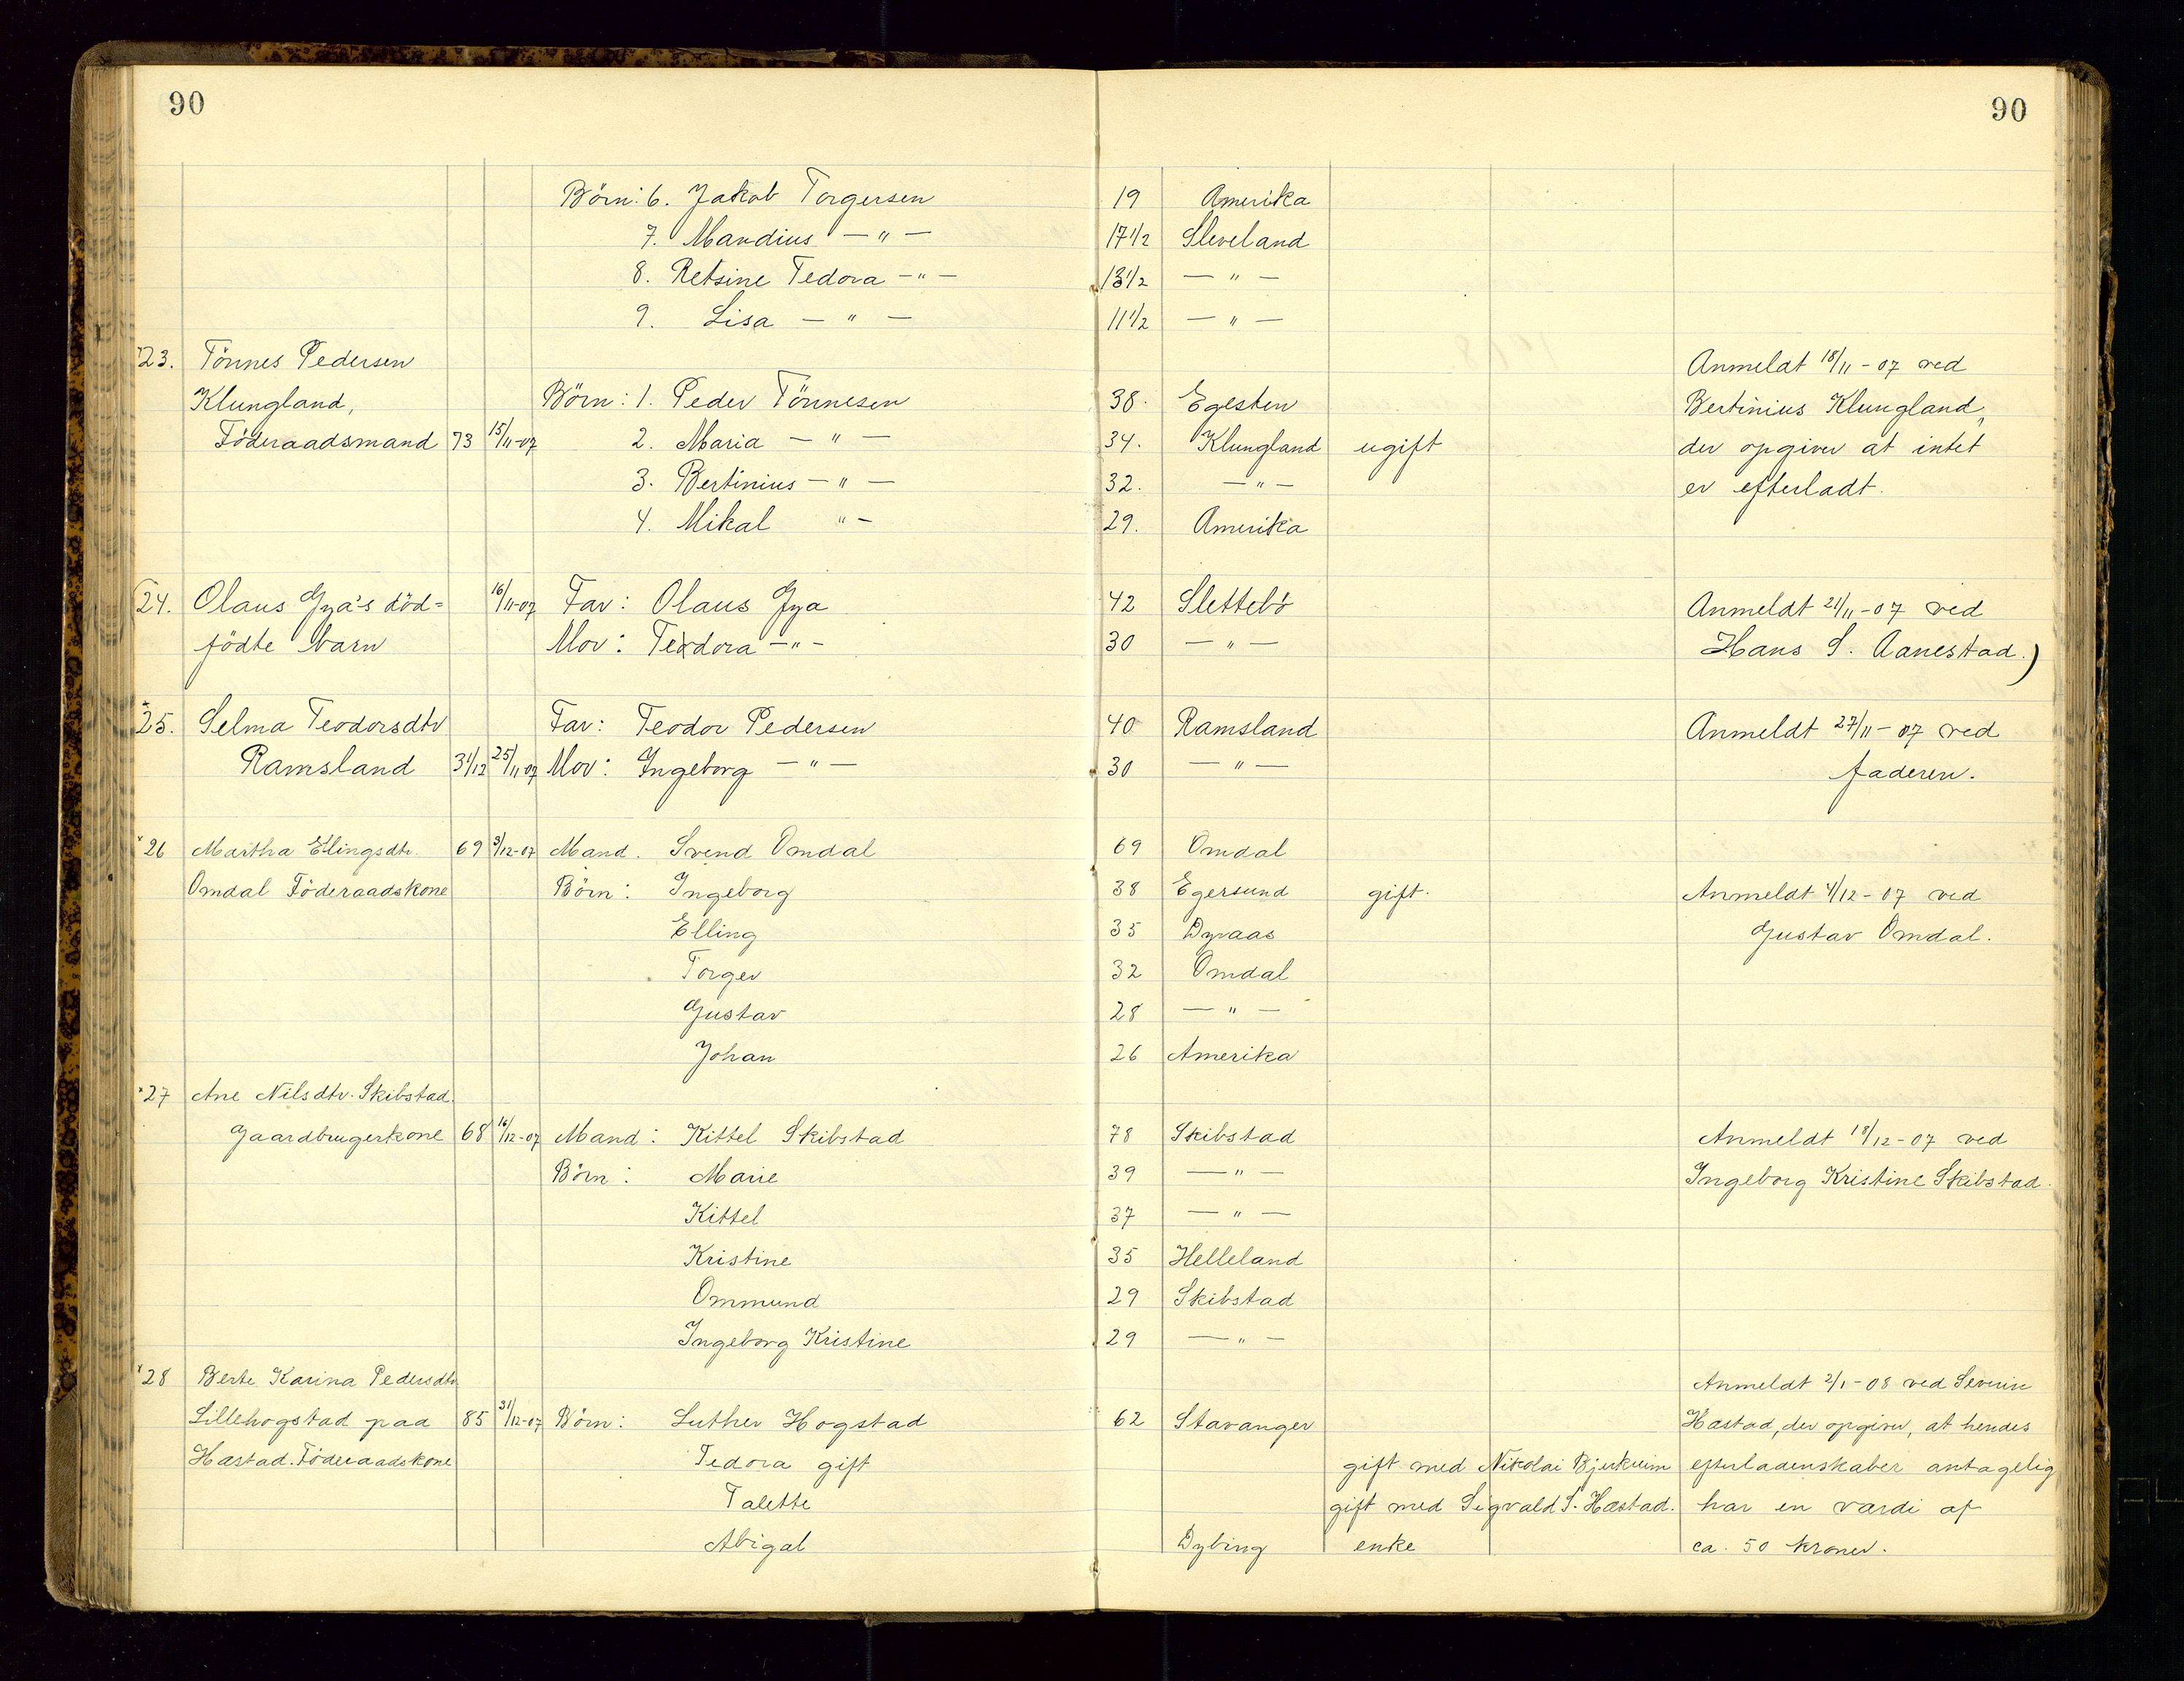 90
90
Börn: 6. Jakob Torgersen 19 Amerika
7. Mandius — " — 17 1/2 Sleveland
8. Retsine Tedora — " — 13 1/2 — " —
9. Lisa — " — 11 1/2 — " —
23. Tönnes Pedersen Anmeldt 18/11 - 07 ved
Klungland, Börn: 1. Peder Tönnesen 38. Egesten Bertinius Klungland,
Föderaadsmand 73 15/11-07 2. Maria — " — 34. Klungland ugift der opgiver at intet
3. Bertinius — " — 32. — " — er efterladt.
4. Mikal " — 29. Amerika
24. Olaus Gya's död= 16/11-07 Far: Olaus Gya 42 Slettebö Anmeldt 21/11 - 07 ved
födte barn Mor: Teodora — " — 30 — " — Hans S. Aanestad.)
25. Selma Teodorsdtr Far: Teodor Pedersen 40 Ramsland Anmeldt 27/11 - 07 ved
Ramsland 3 1/12 25/11 07 Mor: Ingeborg — " — 30 — " — faderen.
26 Martha Ellingsdtr. 69 3/12-07 Mand. Svend Omdal 69 Omdal
Omdal Föderaadskone Börn: Ingeborg 38 Egersund gift. Anmeldt 4/12 - 07 ved
Elling 35 Dyraas Gustav Omdal.
Torger 32 Omdal
Gustav 28 — " —
Johan 26 Amerika
27 Ane Nilsdtr. Skibstad.
Gaardbrugerkone 68 16/12-07 Mand: Kittel Skibstad 78 Skibstad Anmeldt 18/12 - 07 ved
Börn: Marie 39 — " — Ingeborg Kristine Skibstad.
Kittel 37 — " —
Kristine 35 Helleland
Ommund 29 Skibstad
Ingeborg Kristine 29 — " —
28 Berte Karina Pedersdtr Anmeldt 2/1 - 08 ved Severin
Lillehogstad paa 85 31/12-07 Börn: Luther Hogstad 62 Stavanger Hæstad, der opgiver, at hendes
Hæstad. Föderaadskone Tedora gift gift med Nikolai Bjerkreim efterladenskaber antagelig
Talette gift med Sigvald S. Hæstad. har en værdi af
Abigal Dybing enke ca. 50 kroner.